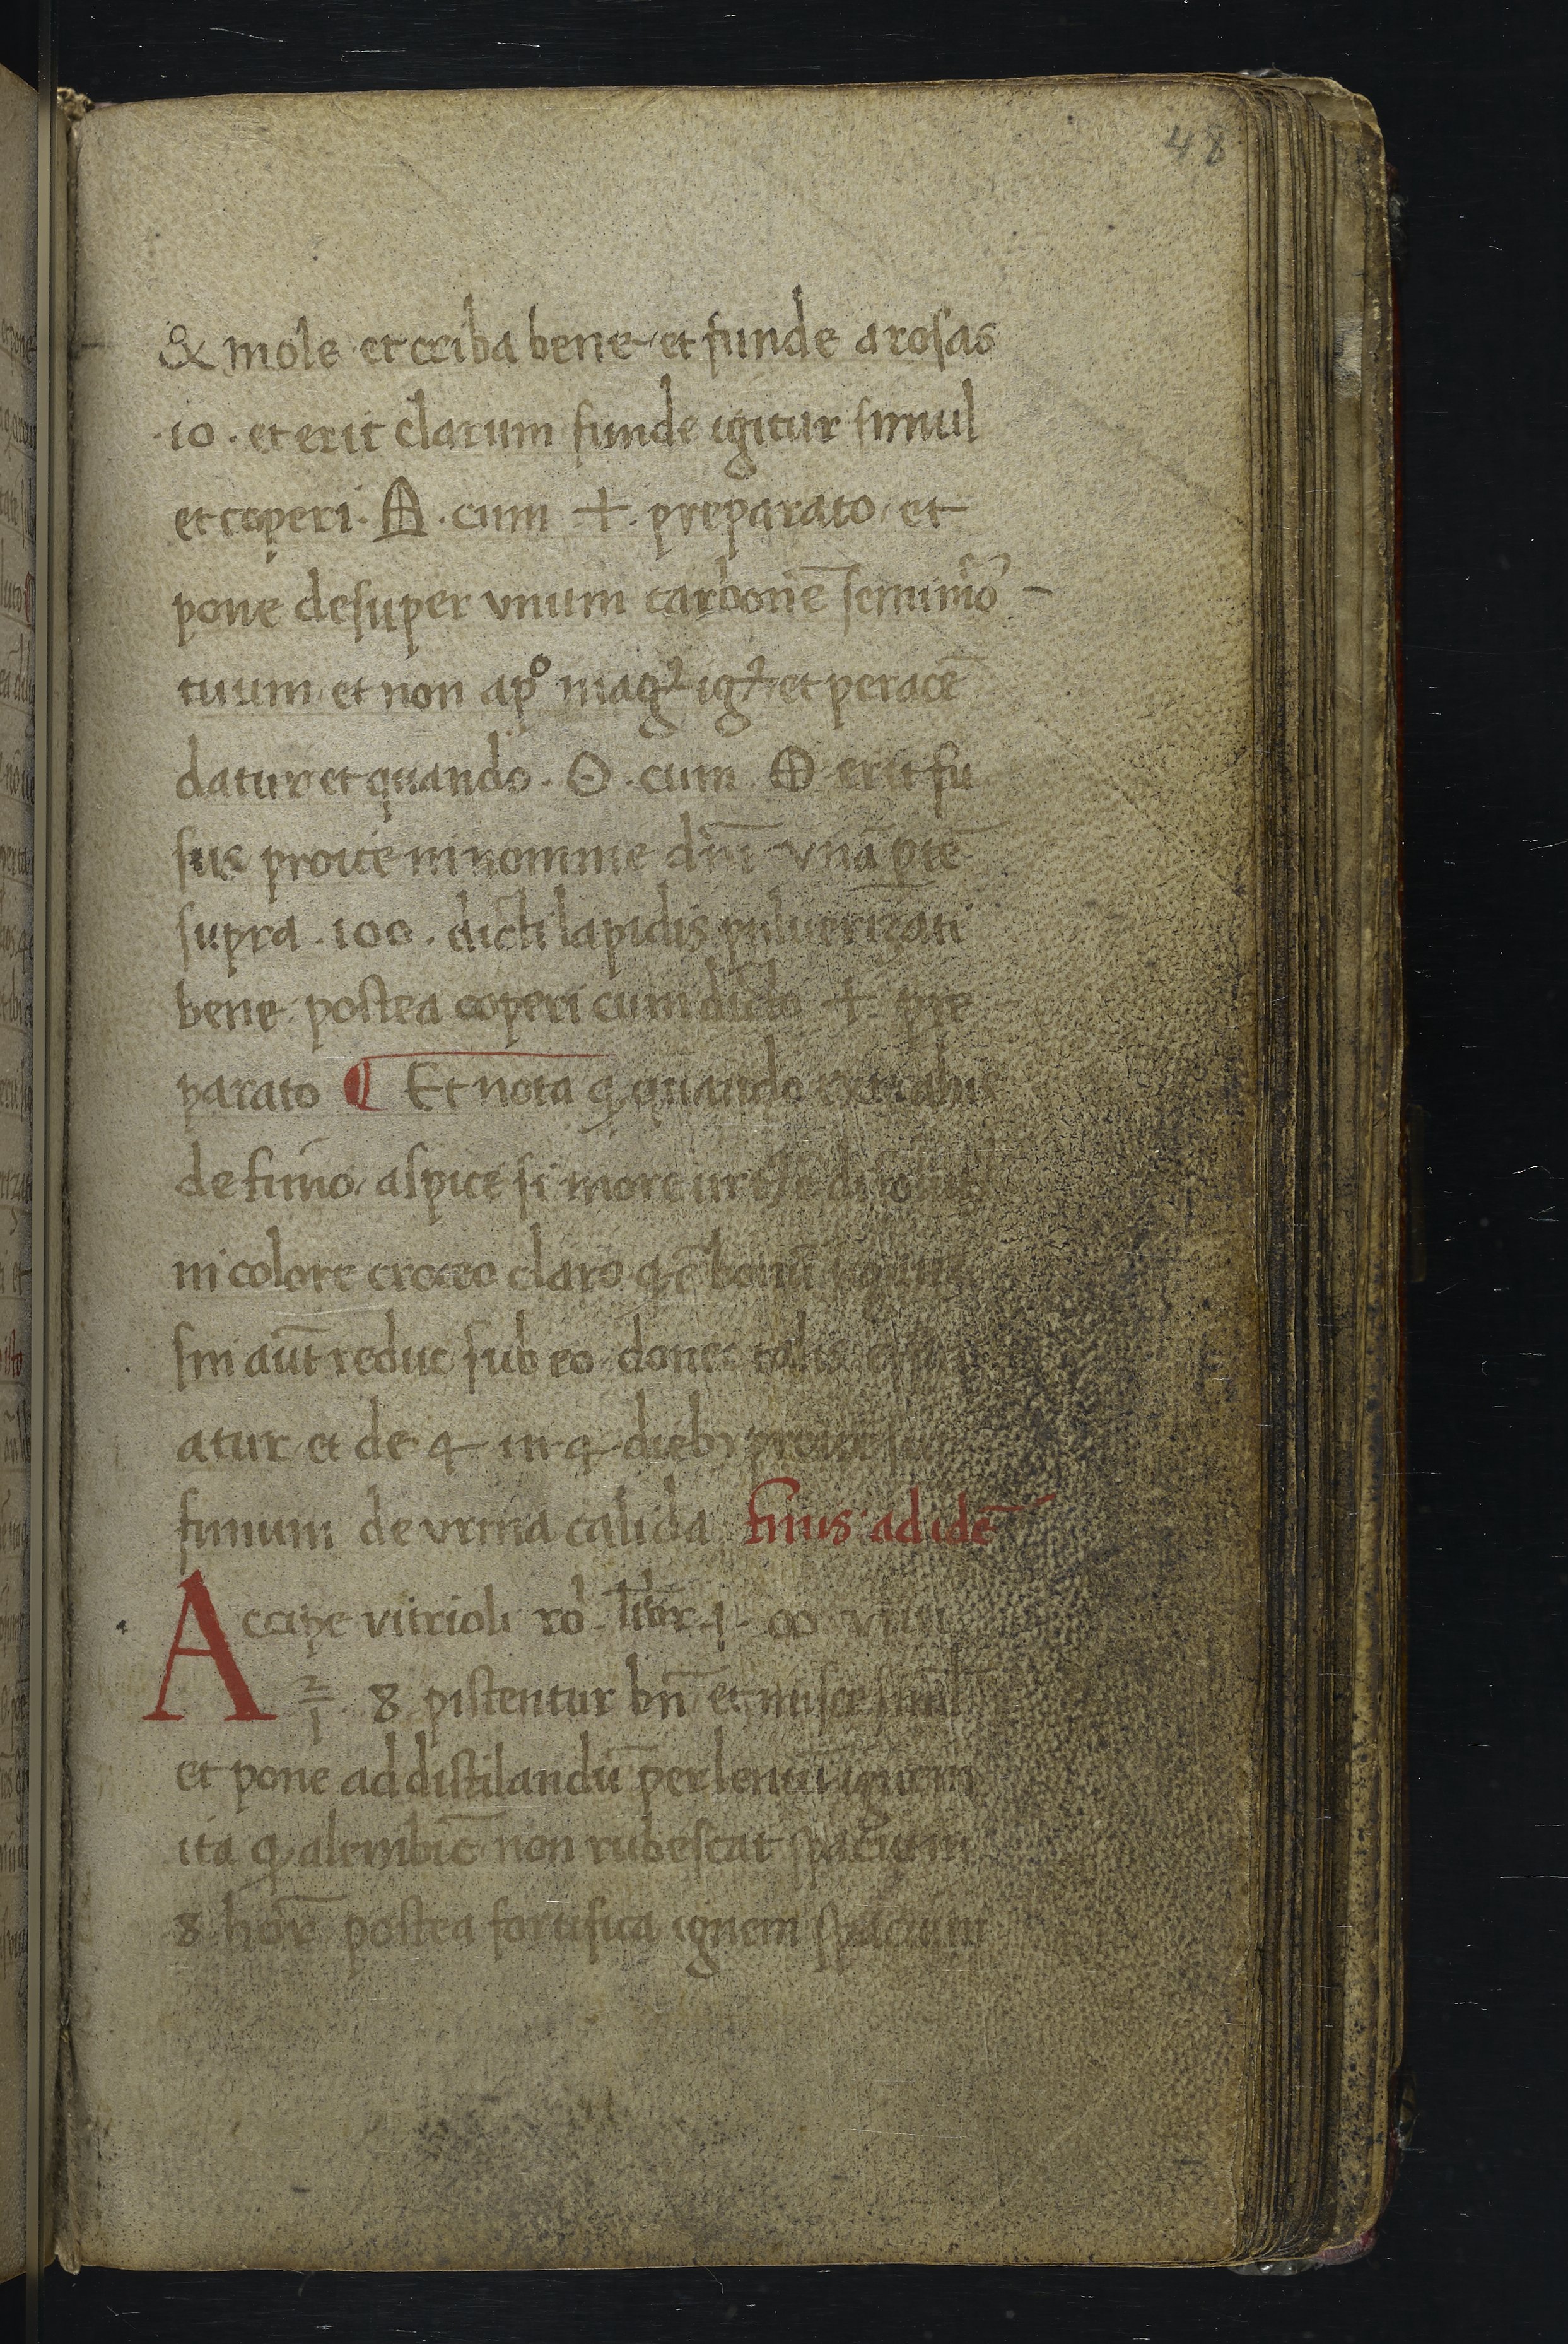 48
& mole et criba bene et funde a rosas
·10· et erit clarum funde igitur simul
et coperi · A · cum ✢ · preparato et
pone desuper vnum carbonē semimõ
tuum et non apº magꝭ igꝭ et peracē
datur et quando · ʘ · cum erit fu
sus proice in nomine dñi vnā ptē
supra · 100 · dicti lapidis pulverizati
bene postea coperi cum dicto ✢ pre
parato ¶ Et nota ꝙ quando extrahis
de fimo aspice si more
in colore croceo claro bonū
sin aūt reduc sub eo donec
atur et de 4 in 4 dieb
fimum de vrina calida finis ad idē
Accipe vitrioli ro · libr · j ·
8 pistentur bñ et misce siml
et pone ad distilandū per lenum ignem
ita ꝙ alembic̄ non rubescat spacium
8 hore postea fortifica ignem spacium